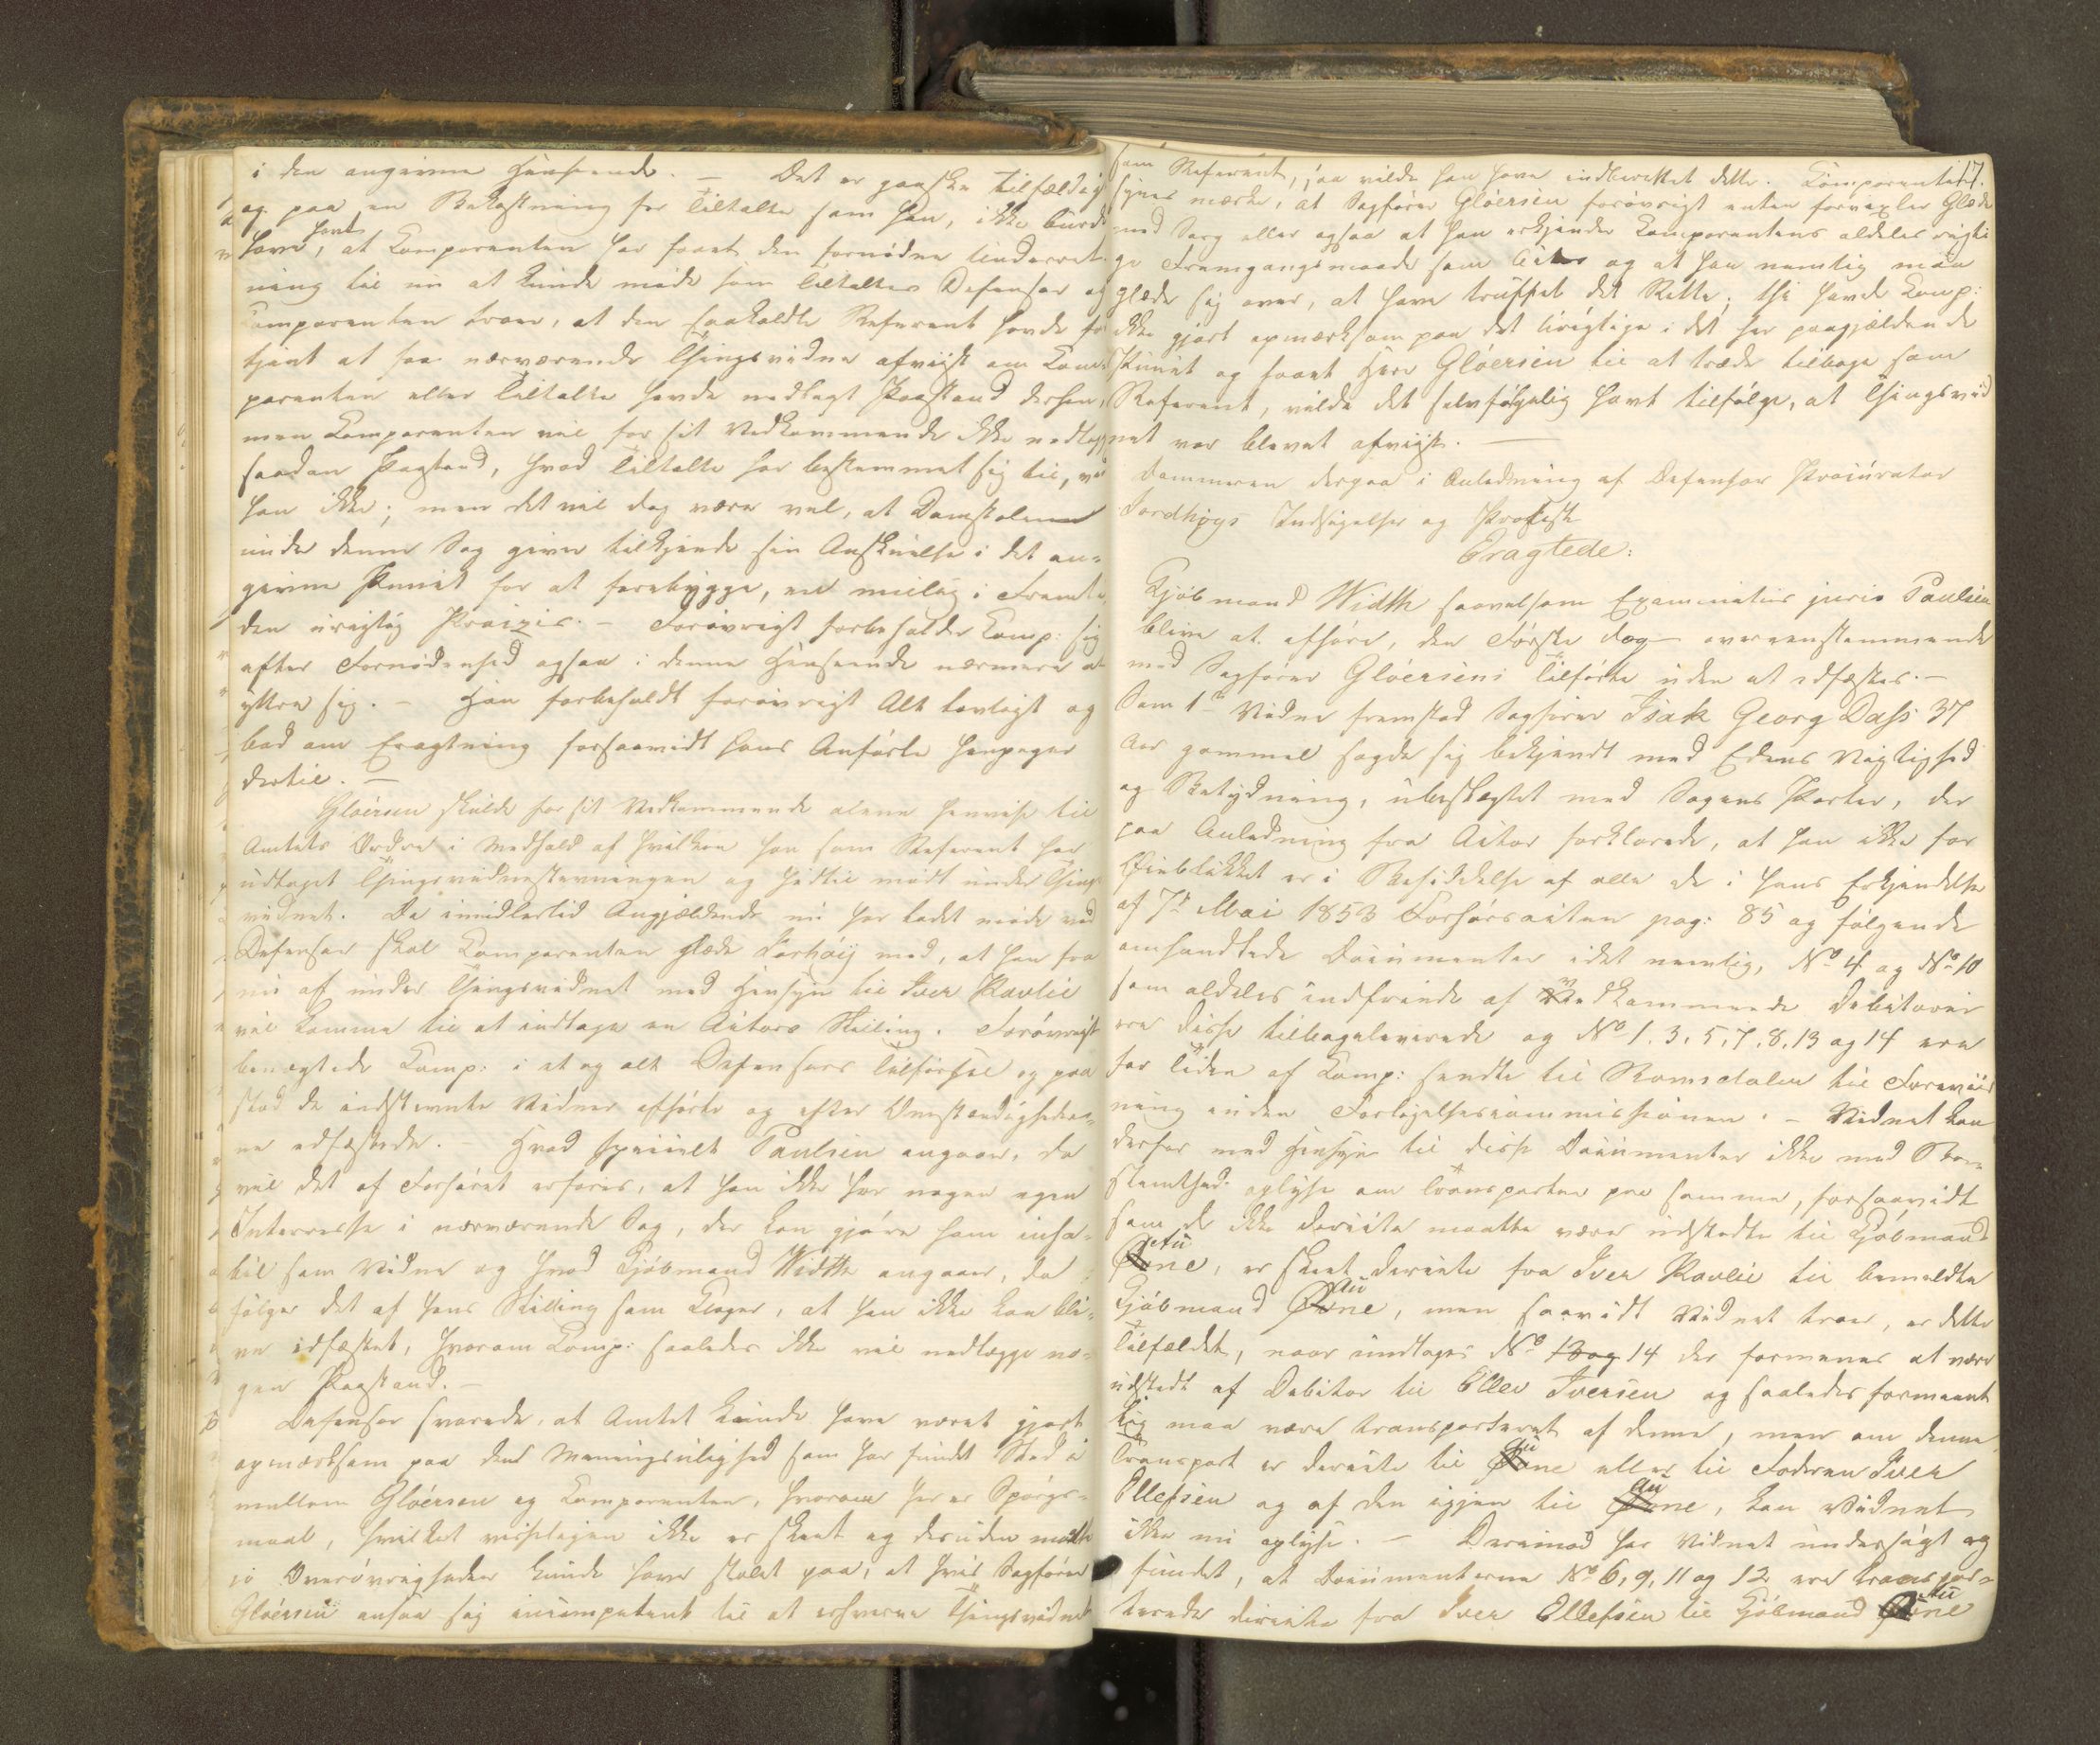 i den angivne Henseende. — Det er ganske tilfældig
og paa en Bekostning for Tiltalte som han, ikke burde
have havt, at Comparenten har faaet den fornødne Underret-
ning til nu at kunde møde som Tiltaltes Defensor og
Comparenten troer, at den saakaldte Referent havde for
tjent at faa nærværende Thingsvidne afviist om Com-
parenten eller Tiltalte havde nedlagt Paastand derpaa,
men Comparenten vil for sit Vedkommende ikke nedlægge
saadan Paastand, hvad Tiltalte har bestemmet sig til, ved
han ikke; men det vil dog være vel, at Domstolene
under denne Sag giver tilkjende sin Anskuelse i det an-
givne Punct for at forebygge, en muelig i Fremti-
den urigtig Praxis. — Forøvrigt forbeholder Comp: sig
efter Fornødenhed ogsaa i denne Henseende nærmere at
yttre sig. — Han forbeholdt forøvrigt Alt lovligt og
bad om Eragtning forsaavidt hans Anførte henpeger
dertil. —
Gløersen skulde for sit Vedkommende alene henvise til
Amtets Ordre i Medhold af hvilken han som Referent har
udtaget Thingsvidnestævningen og hidtil mødt under Things
vidnet. Da imidlertid Angjældende nu har ladet møde ved
Defensor skal Comparenten glæde Dorhøy med, at han fra
nu af under Thingsvidnet med Hensyn til Iver Ravlie
vil komme til at indtage en Actors Stilling. Forøvrigt
benægtede Comp: i et og alt Defensors Tilførsel og paa
stod de indstævnte Vidner afhørte og efter Omstændigheder-
ne edfæstede. — Hvad specielt Paulsen angaaer, da
vil det af Forhøret erfares, at han ikke har nogen egen
Interesse i nærværende Sag, der kan gjøre ham inha-
bil som Vidne og hvad Kjøbmand Width angaaer, da
følger det af hans Stilling som Klager, at han ikke kan bli-
ve edfæstet, hvorom Comp: saaledes ikke vil nedlægge no-
gen Paastand. —
Defensor svarede, at Amtet kunde have været gjort
opmærksom paa den Meningsulighed som har fundet Sted i
mellem Gløersen og Comparenten, hvorom her er Spørgs-
maal, hvilket visselig ikke er skeet og desuden maatte
jo Overøvrigheden kunde have stolet paa, at hvis Sagfører
Gløersen ansaa sig incompetent til at erhverve Thingsvidnet
17.
som Referent, saa vilde han have indberettet dette. Comparenten
synes mærke, at Sagfører Gløersen forøvrigt enten forvexler Glæde
med Sorg eller ogsaa at han erkjender Comparentens aldeles rigti
ge Fremgangsmaade som Actor og at han nemlig maa
glæde sig over, at have truffet det Rette; thi havde Comp:
ikke gjort opmærksom paa det Urigtige i det her paagjældende
Punct og faaet Herr Gløersen til at træde tilbage som
Referent, vilde det selvfølgelig havt tilfølge, at Thingsvid
net var blevet afviist. —
Dommeren derpaa i Anledning af Defensor Procurator
Dordhøys Indsigelser og Protest
Eragtede:
Kjøbmand Width saavelsom Examinatus juris Paulsen
bliver at afhøre, den Første dog overeensstemmende
med Sagfører Gløersens Tilførte uden at edfæstes. —
Som 1ste Vidne fremstod Sagfører Isak Georg Dass 37
Aar gammel sagde sig bekjendt med Edens Vigtighed
og Betydning, ubeslægtet med Sagens Parter, der
paa Anledning fra Actor forklarede, at han ikke for
Øieblikket er i Besiddelse af alle de i hans Erkjendelse
af 7de Mai 1853 Forhørsacten pag: 85 og følgende
omhandlede Documenter idet nemlig, No 4 og No 10
som aldeles indfriede af Vedkommende Debitorer
ere disse tilbageleverede og No 1. 3. 5. 7. 8. 13 og 14 ere
for Tiden af Comp: sendte til Romsdalen til Foreviis
ning inden Forligelsescommissionen. — Vidnet kan
derfor med Hensyn til disse Documenter ikke med Be-
stemthed oplyse om Transporten paa samme, forsaavidt
som de ikke directe maatte være udstedte til Kjøbmand
Aune, er skeet directe fra Iver Ravlie til bemeldte
Kjøbmand Aune, men saavidt Vidnet troer, er dette
Tilfældet, naar undtages No 13 og 14 der formenes at være
udstedt af Debitor til Ellev Iversen og saaledes formeent
lig maa være transporteret af denne, men om denne
Transport er directe til Aune eller til Faderen Iver
Ellefsen og af den igjen til Aune, kan Vidnet
ikke nu oplyse. — Derimod har Vidnet undersøgt og
fundet, at Documenterne No 6, 9, 11 og 12. ere transpor-
terede directe fra Iver Ellefsen til Kjøbmand Aune